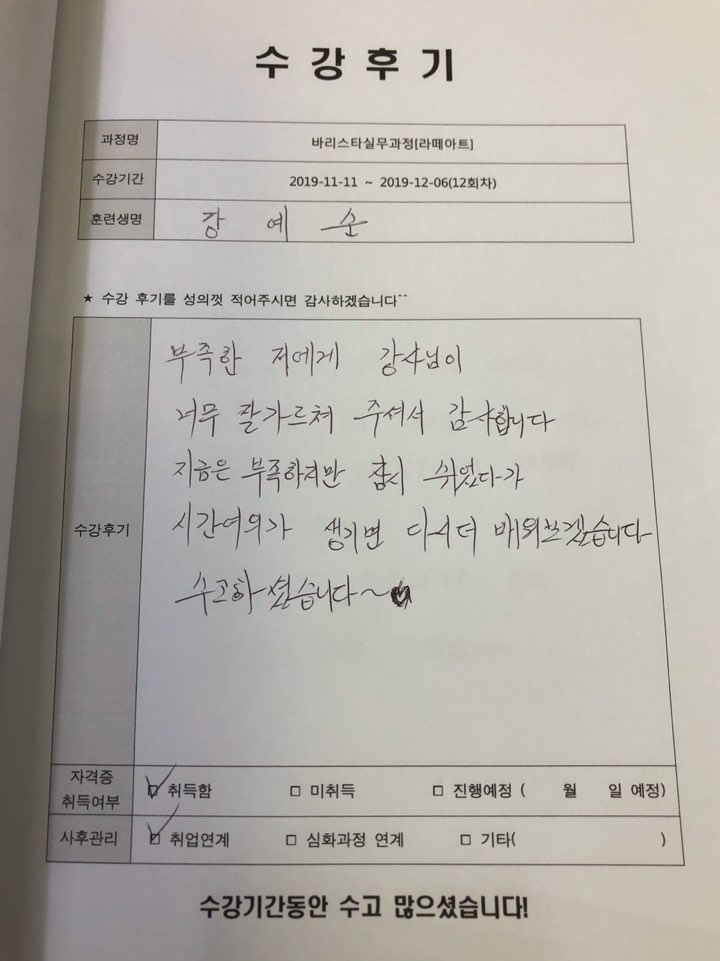 수 강 후 기
과정명 바리스타실무과정[라떼아트]
수강기간 2019-11-11 ~ 2019-12-06(12회차)
훈련생명 강 예 순
★ 수강 후기를 성의껏 적어주시면 감사하겠습니다^^
부족한 저에게 강사님이
너무 잘가르쳐 주셔서 감사합니다
지금은 부족하지만 잠시 쉬었다가
수강후기
시간여의가 생기면 다시더 배워보겠습니다
수고하셨습니다~
자격증 취득여부 ☑ 취득함 □ 미취득 □ 진행예정 ( 월 일 예정)
사후관리 ☑ 취업연계 □ 심화과정 연계 □ 기타( )
수강기간동안 수고 많으셨습니다!